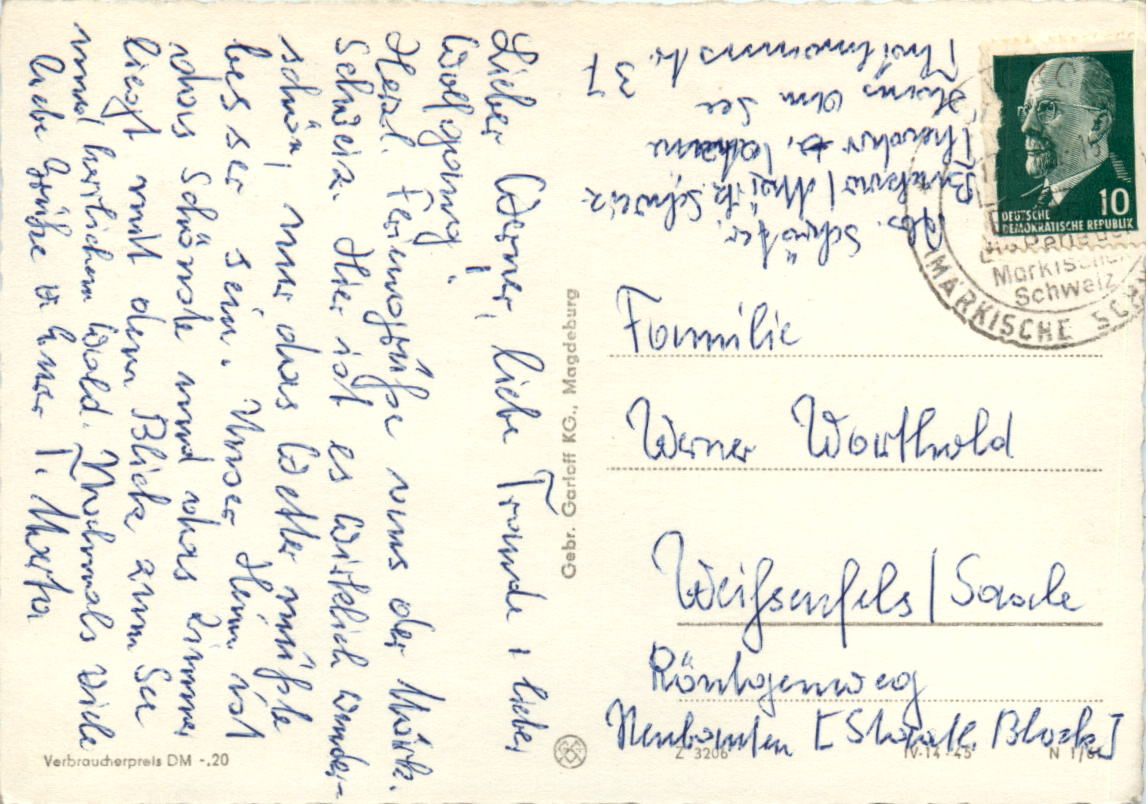 Lieber Werner, liebe Traude + lieber
Wolfgang!
Herzl. Feriengrüße aus der Märk.
Schweiz. Hier ist es wirklich wunder-
schön, nur das Wetter müßte
besser sein. Unser Heim ist
das Schönste und das Zimmer
liegt mit dem Blick zum See
und herrlichem Wald. Nochmals viele
liebe Grüße v. Eurer T. Marta
Abs. Schröter,
Buckow/Märk. Schweiz
Haus am See
37
Familie
Werner Worthold
Weißenfels/Saale
Röntgenweg
Neubauten [Staatl. Block]
Gebr. Garloff KG., Magdeburg
Verbraucherpreis DM -,20
Z 3206
IV-14-45
N 1/
10
DEUTSCHE
DEMOKRATISCHE REPUBLIK
Märkischen
Schweiz
MÄRKISCHE